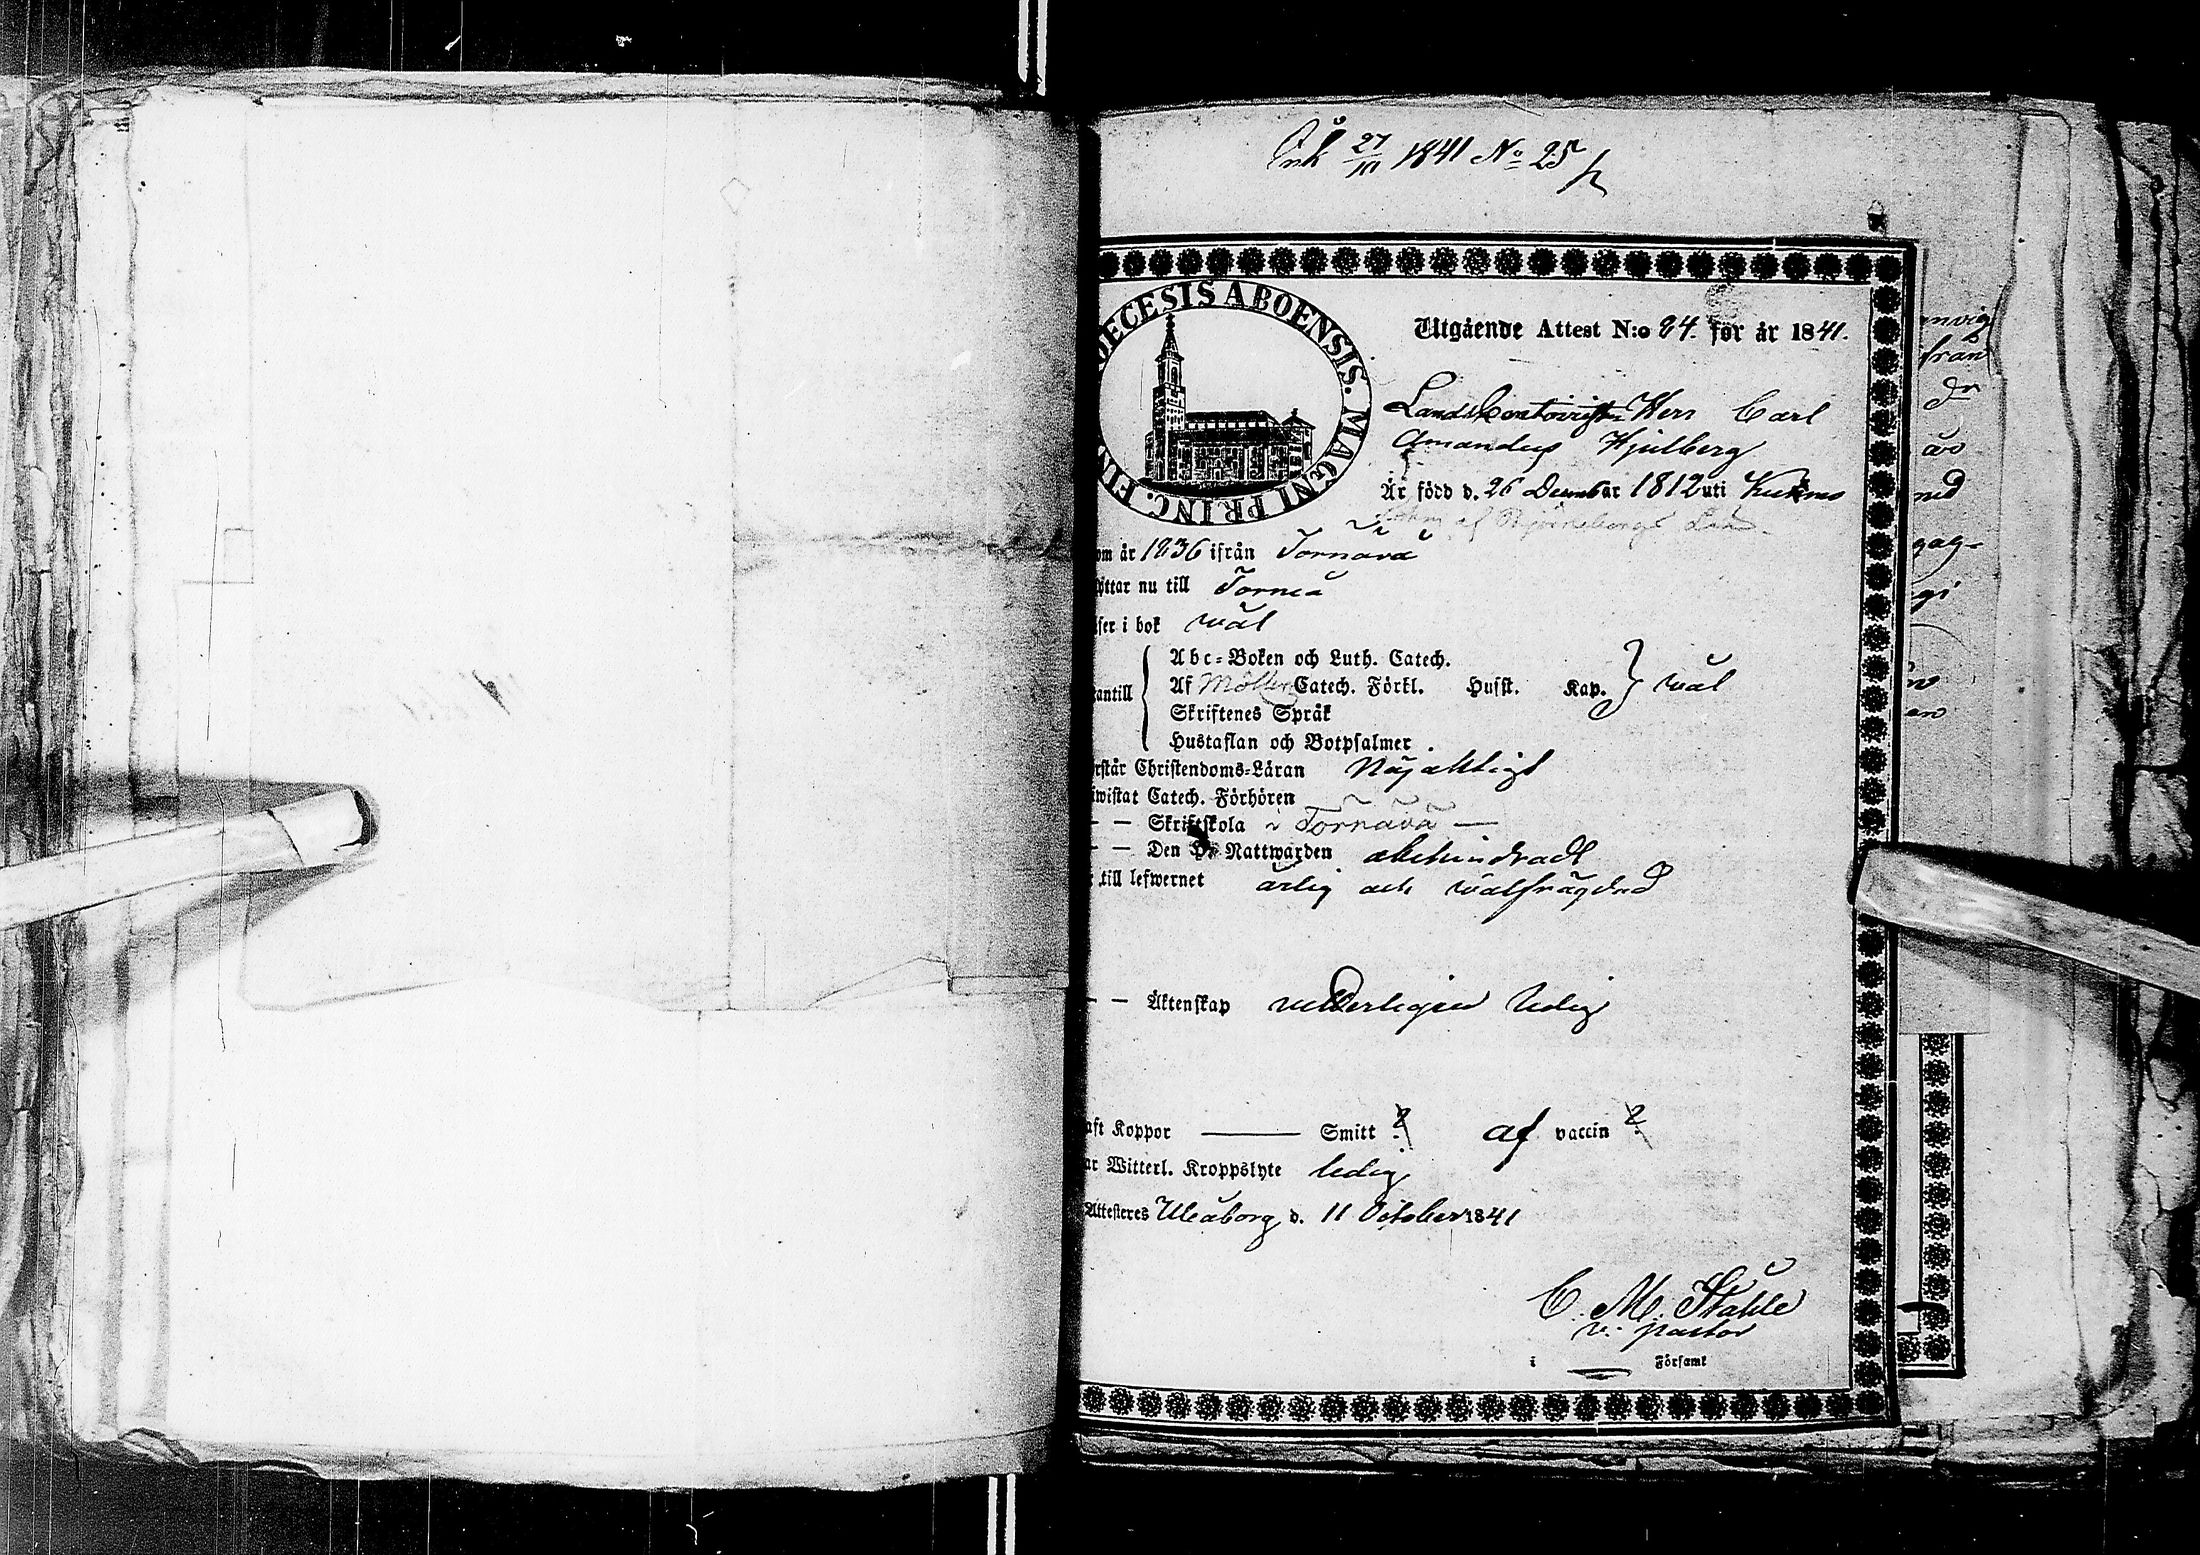 Ink 27/10 1841 No 25
DECESIS ABOENSIS. MAGNI PRINC. FIN
Utgående Attest N:o 84. för år 1841.
Landskontoristen Herr Carl
Amandus Hjulberg
Är född d. 26 December 1812 uti
af Björneborgs Län
om år 1836 ifrån Tornävä
yttar nu till Torneå
äser i bok wäl
antill
Abc-Boken och Luth. Catech.
Af Möllers Catech. Förkl. Husst. Kap. } wäl
Skriftenes Språk
Hustaflan och Botpsalmer.
rstår Christendoms-Läran Nöjaktigt
iwistat Catech. Förhören
— — Skriftskola i Tornävä —
— — Den H. Nattwarden obehindradt
till lefwernet ärlig och wälfrägdad
— — Äktenskap vetterligen ledig
aft Koppor — Smitt ? af vaccin ?
ar Witterl. Kroppslyte ledig
Attesteres Uleåborg d. 11 October 1841
C. M. Ståhle
v. pastor
i — Församl
från